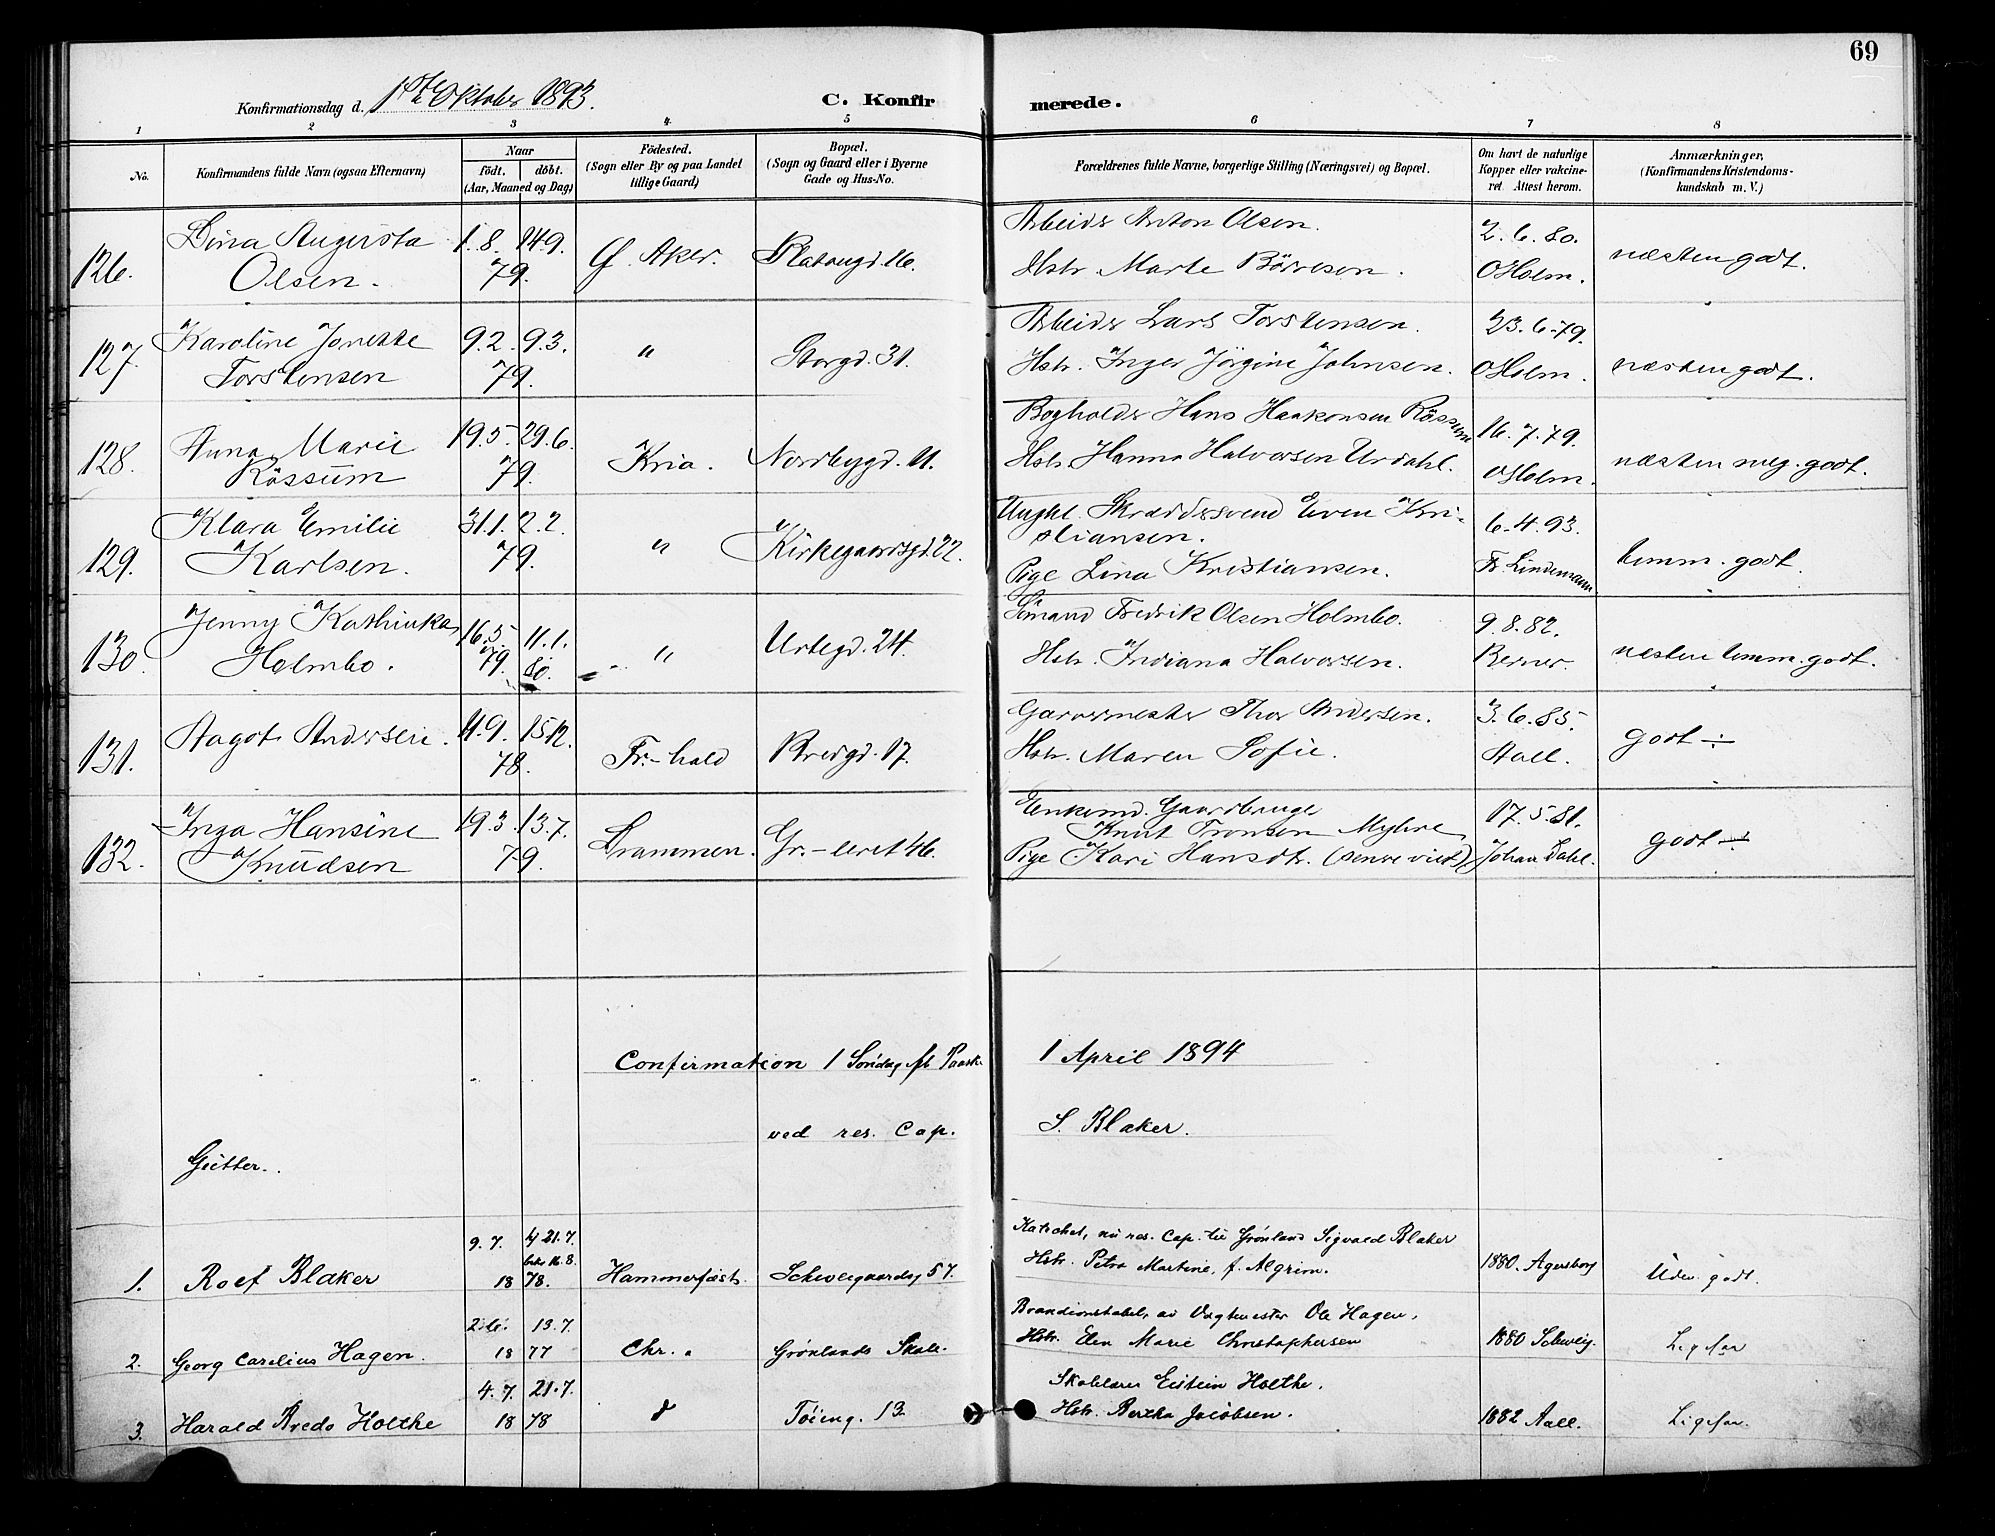 69
Konfirmationsdag d. 1ste Oktober 1893.
C. Konfirmerede.
1 2 3 4 5 6 7 8
No.
Konfirmandens fulde Navn (ogsaa Efternavn)
Naar
födt. döbt.
(Aar, Maaned og Dag)
Födested.
(Sogn eller By og paa Landet
tillige Gaard)
Bopæl.
(Sogn og Gaard eller i Byerne
Gade og Hus-No.
Forældrenes fulde Navne, borgerlige Stilling (Næringsvei) og Bopæl.
Om havt de naturlige
Kopper eller vakcine-
ret. Attest herom.
Anmærkninger,
(Konfirmandens Kristendoms-
kundskab m. V.)
126. Dina Augusta 1.8. 14.9. Ø. Aker. Platougd. 16. Arbeider Anton Olsen. 2.6.80. næsten godt.
Olsen. 79. Hstr. Marte Börresen. O Holm.
127. Karoline Jonette 9.2. 9.3. " Storgd. 31. Arbeider Lars Torstensen. 23.6.79. næsten godt.
Torstensen 79. Hstr. Inger Jörgine Johnsen. O Holm.
128. Anna Marie 19.5. 29.6. Kria. Nordbygd. 11. Bogholder Hans Haakonsen Rössum 16.7.79. næsten meg. godt.
Rössum 79. Hstr. Hanna Halvorsen Urdahl. O Holm.
129. Klara Emilie 31.1. 2.2. " Kirkegaardsgd. 22. Ungkl. Skræddersvend Even Kri- 6.4.93. temm. godt.
Karlsen. 79. stiansen.
Pige Lina Kristiansen. Fr. Lindemann
130. Jenny Kathinka 16.5. 11.1. " Urtegd. 24. Sömand Fredrik Olsen Holmbo. 9.8.82. næsten temm. godt.
Holmbo. 79. 80. Hstr. Indiana Halvorsen. Berner.
131. Aagot Andersen. 11.9. 15.12. Fr.-hald Bredgd. 17. Garvermester Thor Andersen. 3.6.85. godt ÷
78. Hstr. Maren Sofie. Aall.
132. Inga Hansine 19.3. 13.7. Drammen. Gr.-leret 46. Enkemd. Gaardbruge 17.5.81. godt ÷
Knudsen 79. Knut Tronsen Myhre
Pige Kari Hansdtr. Johan Dahl.
Confirmation 1 Søndag ft Paask. 1 April 1894
ved res. Cap. S. Blaker.
Gutter.
1. Roef Blaker 9.7. 21.7. Hammerfest. Schweigaardsg 57. Katechet, nu res. Cap. til Grønland Sigvald Blaker 1880. Agersborg Udm. godt.
18 78. Hstr. Petra Martine, f. Algrim.
2. Georg Carelius Hagen. 2.6. 13.7. Chr. Grønlands Skole. Brandkonstabel, Vagtmester Ole Hagen, 1880 Schweig. Ligesaa
18 77 Hstr. Elen Marie Christophersen
3. Harald Bredo Holthe 4.7. 21.7. d Töieng. 13. Skolelærer Eistein Holthe. 1882 Aall. Ligesaa.
18 78 Hstr. Bertha Jacobsen.